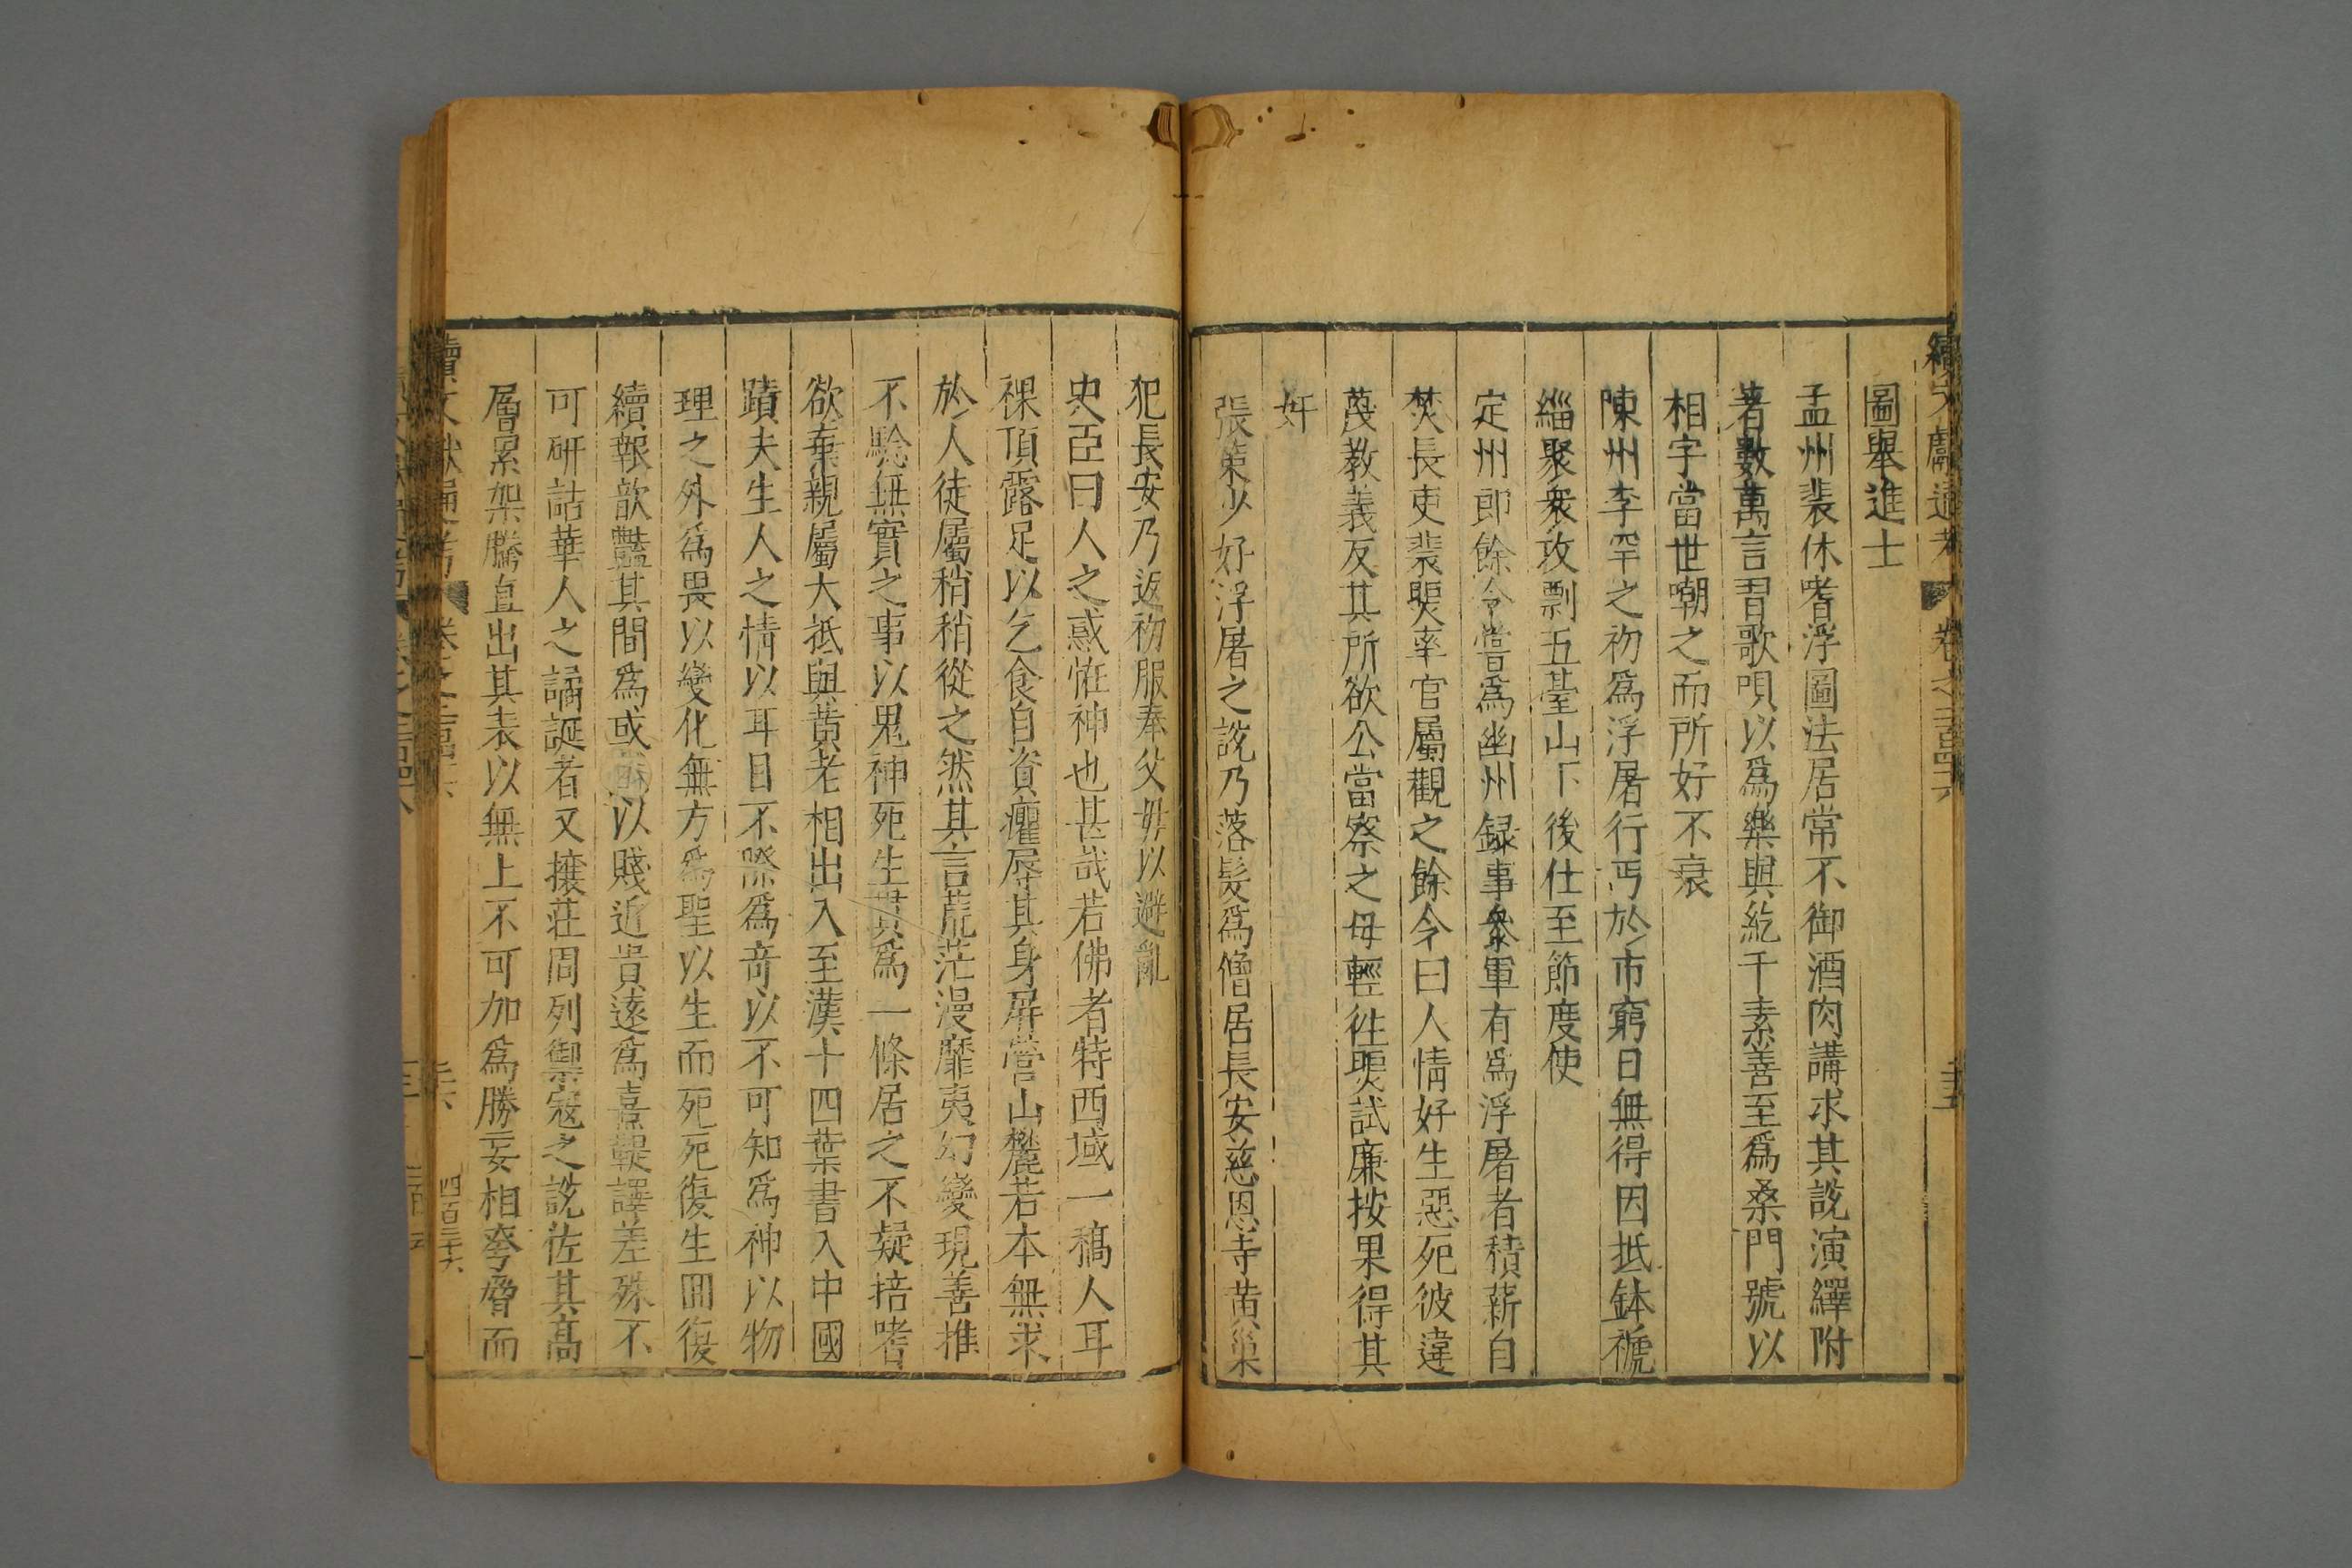 續文獻通考 卷之二百四十六
圖舉進士
孟州裴休嗜浮圖法居常不御酒肉講求其説演繹附
著數萬言習歌唄以爲樂與紇干素善至爲桑門號以
相字當世嘲之而所好不衰
陳州李罕之初爲浮屠行丐於市窮日無得因抵鉢褫
緇聚衆攻剽五臺山下後仕至節度使
定州郎餘令嘗爲幽州録事參軍有爲浮屠者積薪自
焚長吏裴煚率官屬觀之餘令曰人情好生惡死彼違
蔑教義反其所欲公當察之毋輕徃煚試廉按果得其
奸
張策少好浮屠之説乃落髮爲僧居長安慈恩寺黄巢
犯長安乃返初服奉父母以避亂
史臣曰人之惑恠神也甚哉若佛者特西域一槁人耳
祼頂露足以乞食自資癯辱其身屏營山樊若本無求
於人徒屬稍稍從之然其言荒茫漫靡夷幻變現善推
不騐無實之事以鬼神死生貫爲一條居之不疑掊嗜
欲棄親屬大抵與黄老相出入至漢十四葉書入中國
蹟夫生人之情以耳目不際爲奇以不可知爲神以物
理之外爲畏以變化無方爲聖以生而死死復生囬復
續報歆豔其間爲或以賤近貴遠爲憙鞮譯差殊不
可研詰華人之譎誕者又攘莊周列禦寇之説佐其高
層累架騰直出其表以無上不可加爲勝妄相夸脅而
續文獻通考 卷之二百四十六
四百三十六